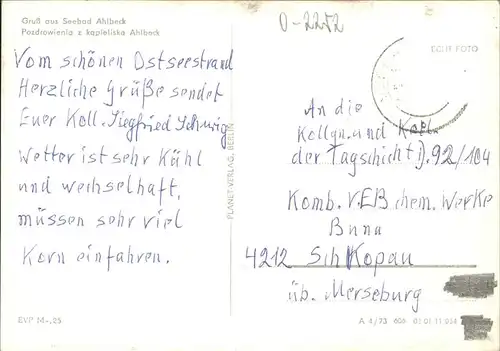 Gruß aus Seebad Ahlbeck
Pozdrowienia z kąpieliska Ahlbeck
O-2272
ECHT FOTO
Vom schönen Ostseestrand
Herzliche Grüße sendet
Euer Koll. Siegfried Schwig
Wetter ist sehr Kühl
und wechselhaft,
müssen sehr viel
Korn einfahren.
PLANET-VERLAG, BERLIN
An die
Kollgn. und Koll.
der Tagschicht D.92/104
Komb. V.E.B chem. Werke
Buna
4212 Sch Kopau
üb. Merseburg
EVP M-,25
A 4/73 606 03 01 11 034